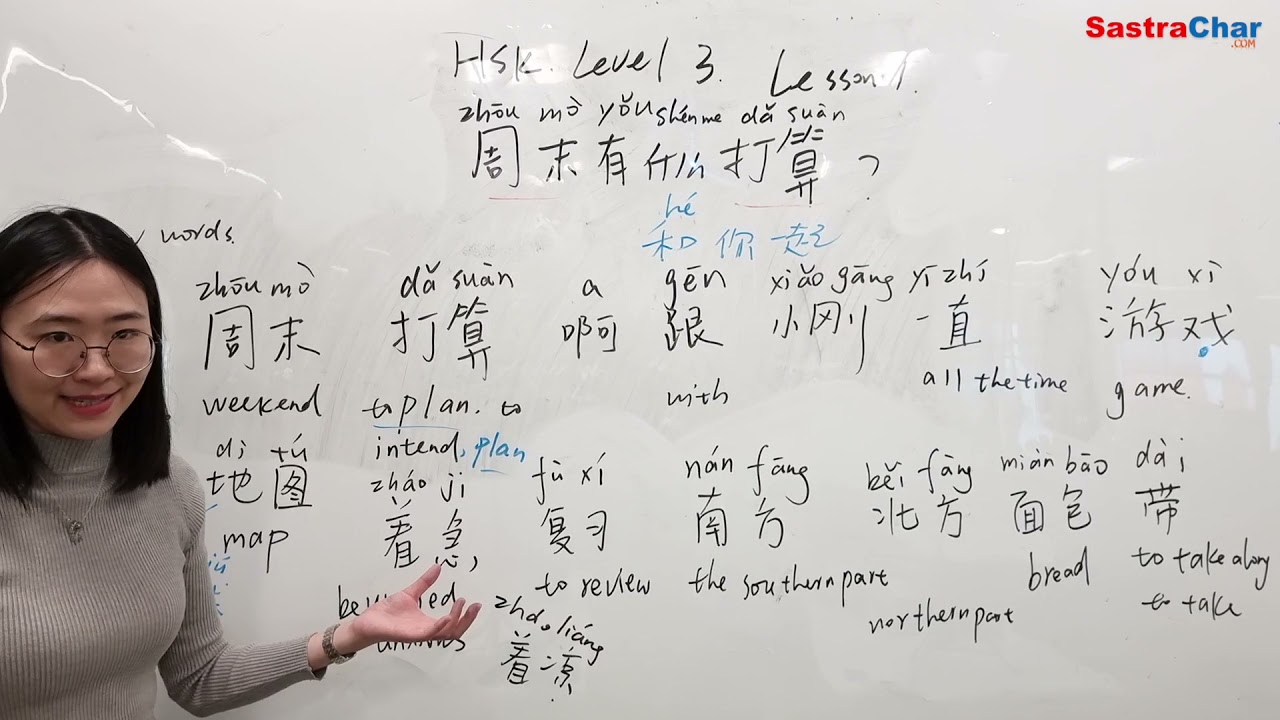 SastraChar
.COM
HSK. Level 3. Lesson 1.
zhōu mò yǒu shénme dǎ suàn
周末有什么打算？
hé
和你一起
words.
zhōu mò dǎ suàn a gēn xiǎo gāng yī zhí yóu xì
周末 打算 啊 跟 小刚 一直 游戏
weekend to plan. to with all the time game.
intend, plan
dì tú zháo jí fù xí nán fāng běi fāng miàn bāo dài
地图 着急 复习 南方 北方 面包 带
map to review the southern part northern part bread to take along
to take
zháo liáng
着凉